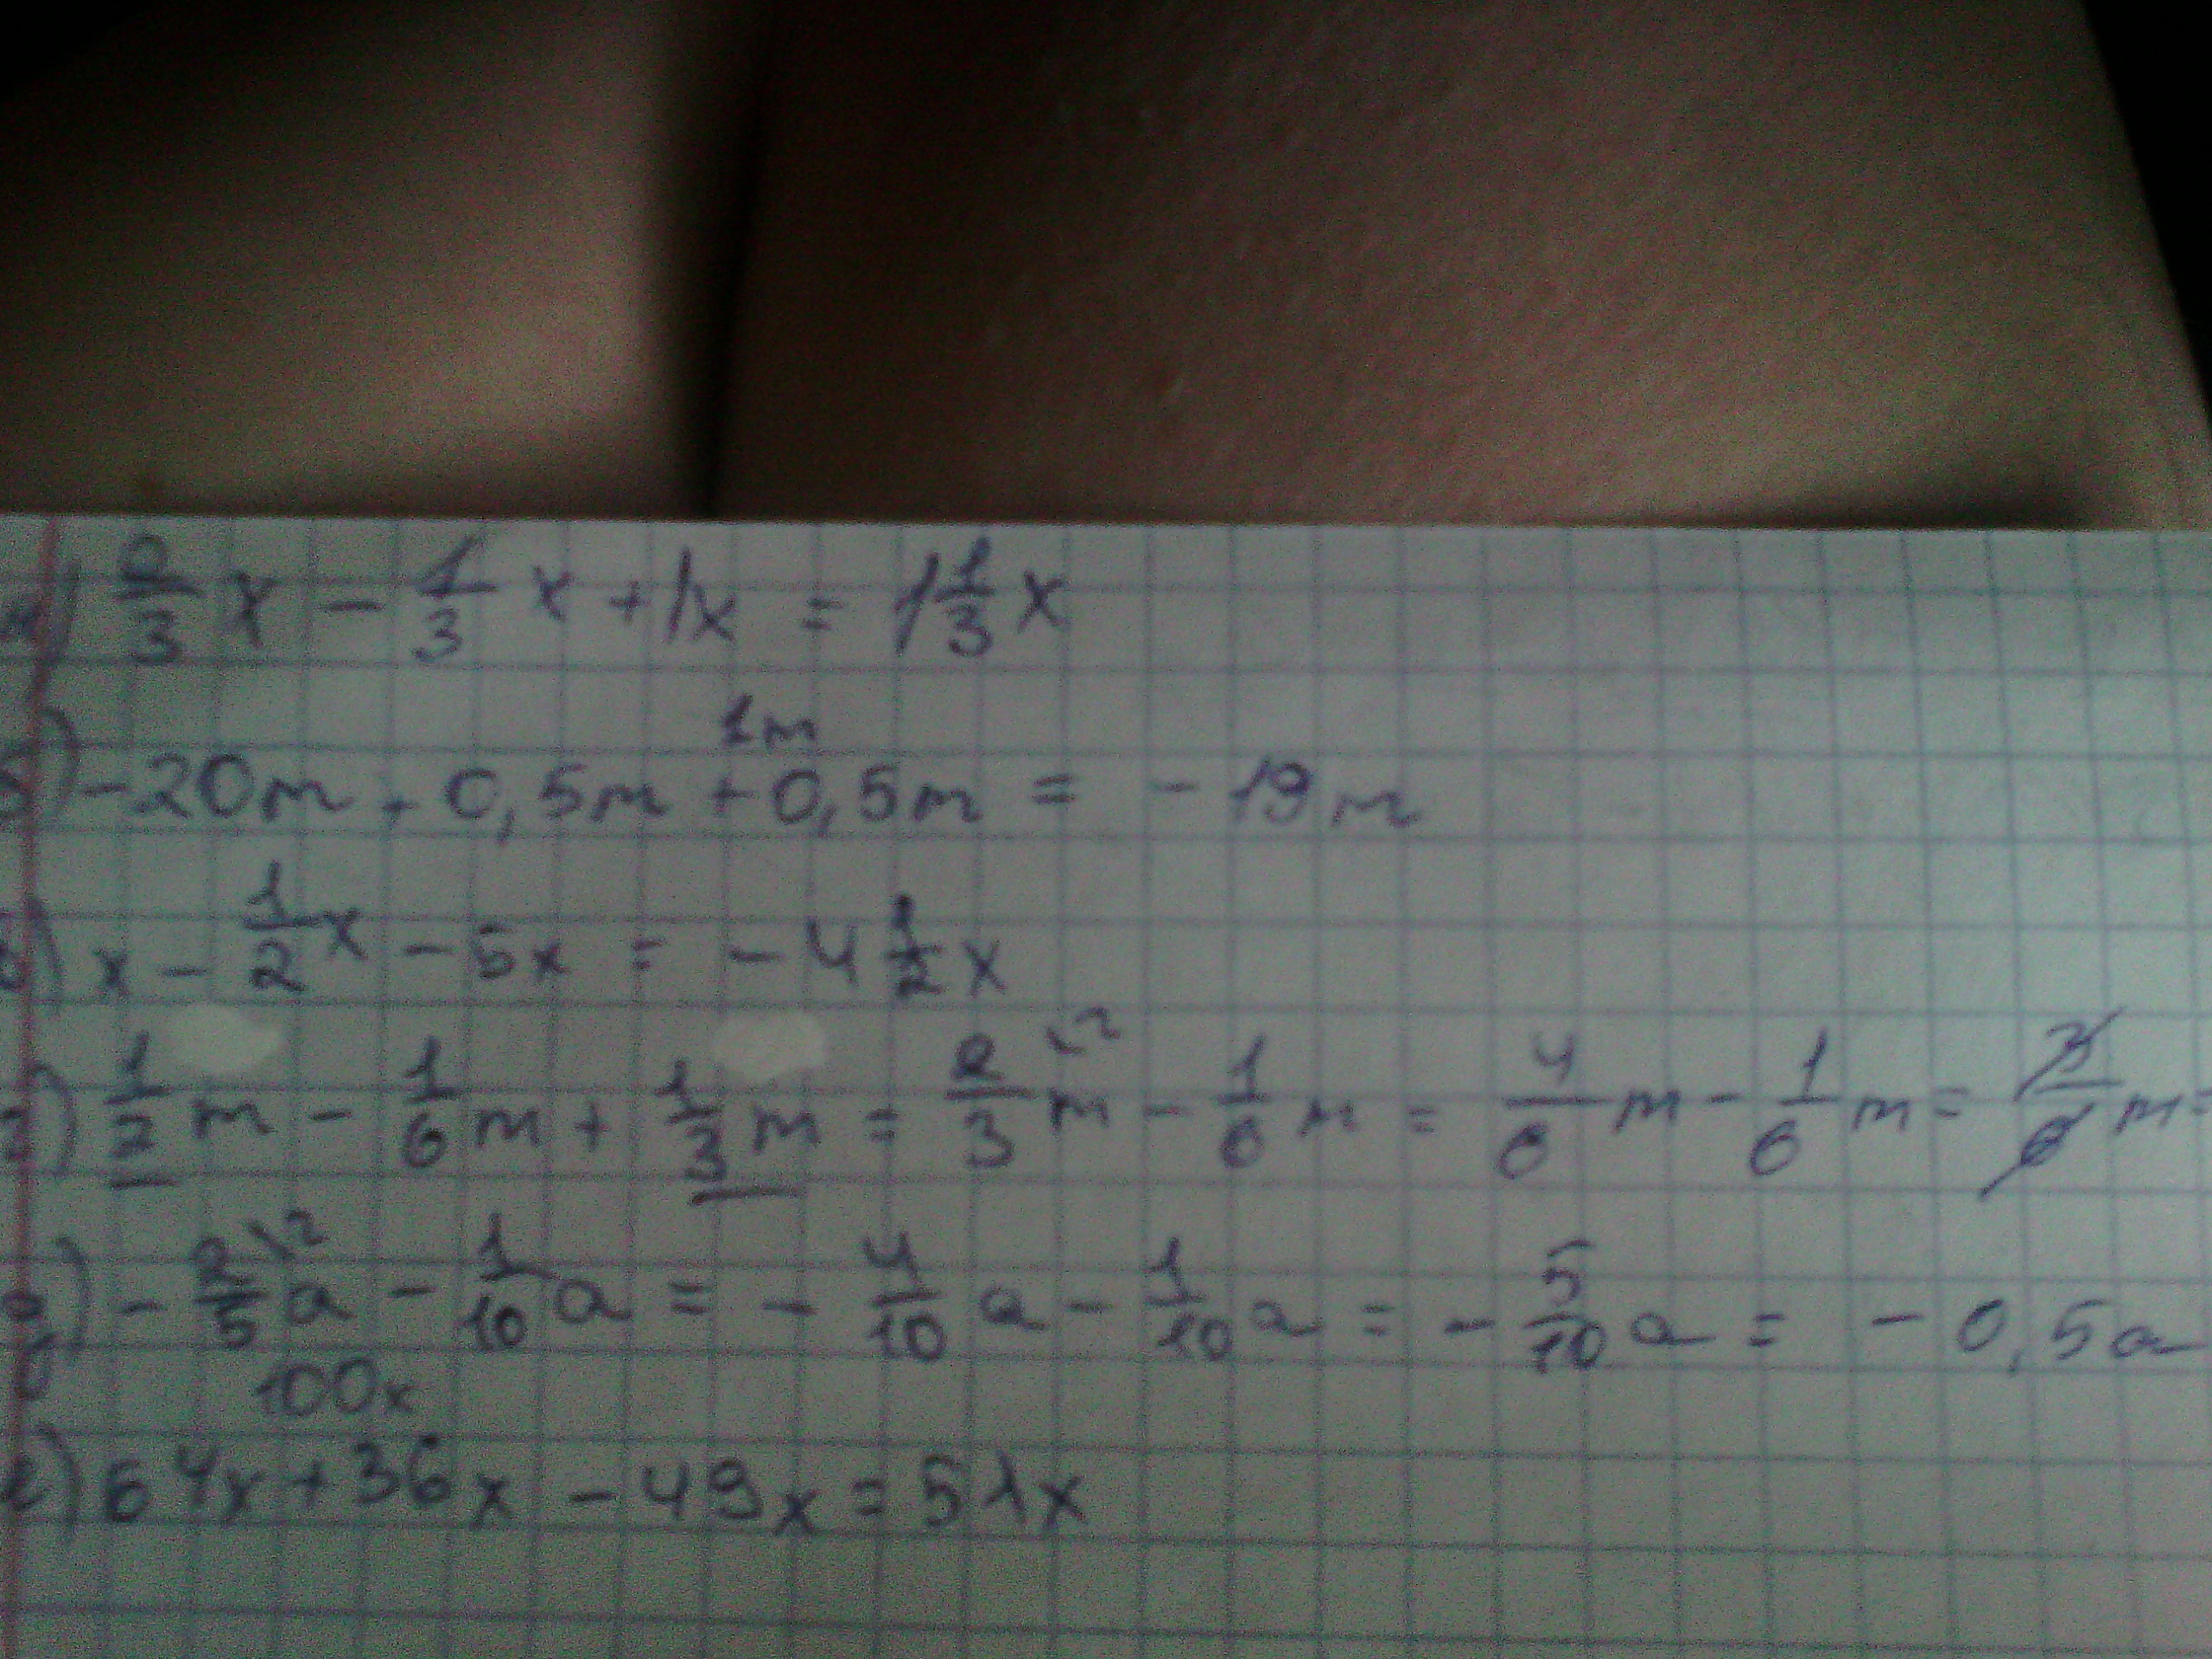 а) 2/3 x - 1/3 x + 1x = 1 1/3 x
1m
б) -20m + 0,5m + 0,5m = -19m
в) x - 1/2 x - 5x = -4 1/2 x
г) 1/2 m - 1/6 m + 1/3 m = 2/3 \2 m - 1/6 m = 4/6 m - 1/6 m = 3/6 m =
д) - 2/5 \2 a - 1/10 a = - 4/10 a - 1/10 a = - 5/10 a = - 0,5a
100x
е) 64x + 36x - 49x = 51x